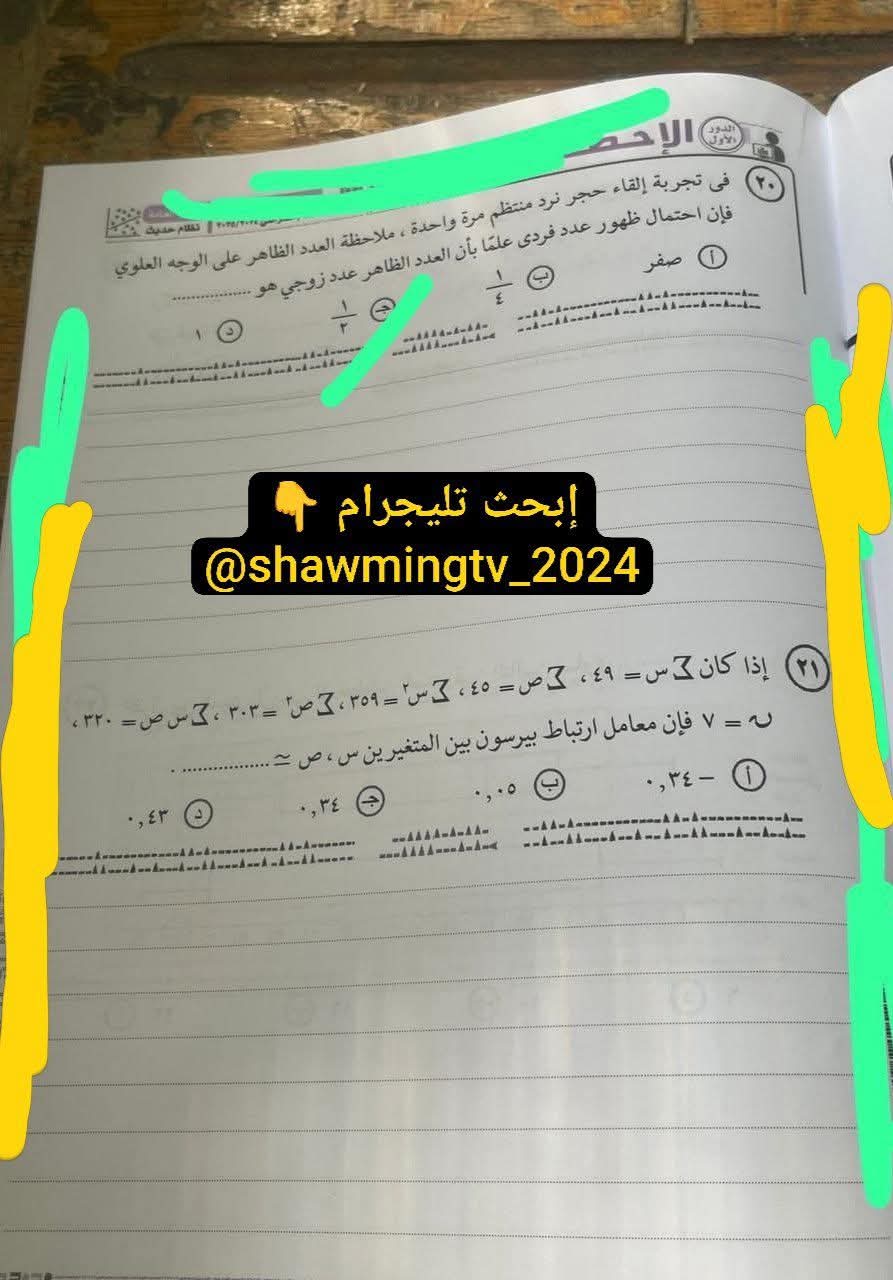 الدور الأول
نظام حديث
٢٠ فى تجربة إلقاء حجر نرد منتظم مرة واحدة ، ملاحظة العدد الظاهر على الوجه العلوي
فإن احتمال ظهور عدد فردى علمًا بأن العدد الظاهر عدد زوجي هو ................
أ صفر ب ١/٤ جـ ١/٢ د ١
إبحث تليجرام 👇
@shawmingtv_2024
٢١ إذا كان ∑ س = ٤٩ ، ∑ ص = ٤٥ ، ∑ س٢ = ٣٥٩ ، ∑ ص٢ = ٣٠٣ ، ∑ س ص = ٣٢٠ ،
ن = ٧ فإن معامل ارتباط بيرسون بين المتغيرين س ، ص ≃ ................ .
أ – ٠,٣٤ ب ٠,٠٥ جـ ٠,٣٤ د ٠,٤٣